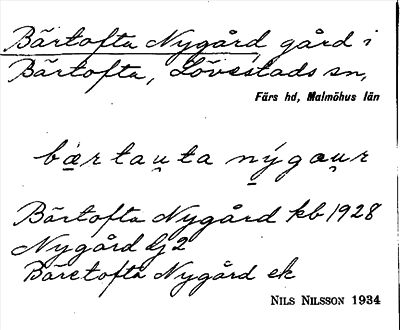 Bärtofta Nygård, gård i
Bärtofta, Lövestads sn,
Färs hd, Malmöhus län
bærtau̯ta nýgau̯r
Bärtofta Nygård kb 1928
Nygård lj 2
Bäretofta Nygård ek
NILS NILSSON 1934